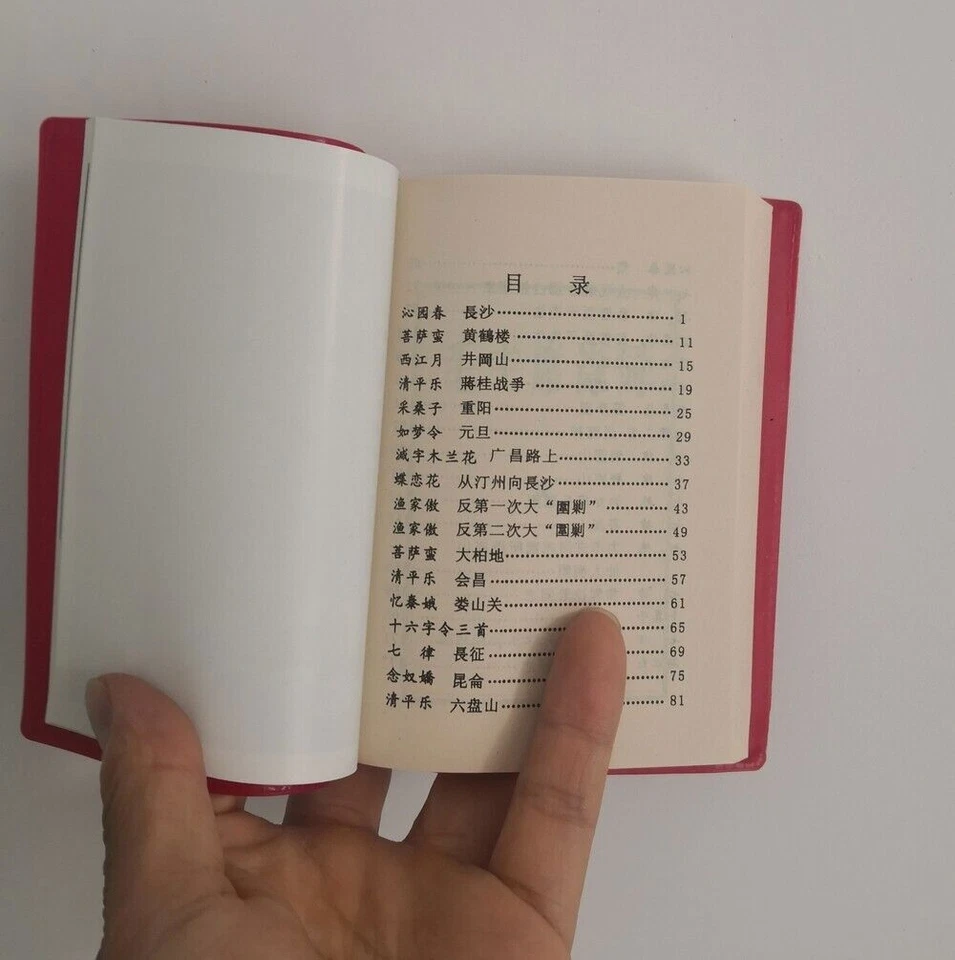 目 录
沁园春 長沙 1
菩萨蛮 黄鶴楼 11
西江月 井岡山 15
清平乐 蔣桂战爭 19
采桑子 重阳 25
如梦令 元旦 29
减字木兰花 广昌路上 33
蝶恋花 从汀州向長沙 37
渔家傲 反第一次大“圍剿” 43
渔家傲 反第二次大“圍剿” 49
菩萨蛮 大柏地 53
清平乐 会昌 57
忆秦娥 娄山关 61
十六字令三首 65
七 律 長征 69
念奴嬌 昆侖 75
清平乐 六盘山 81